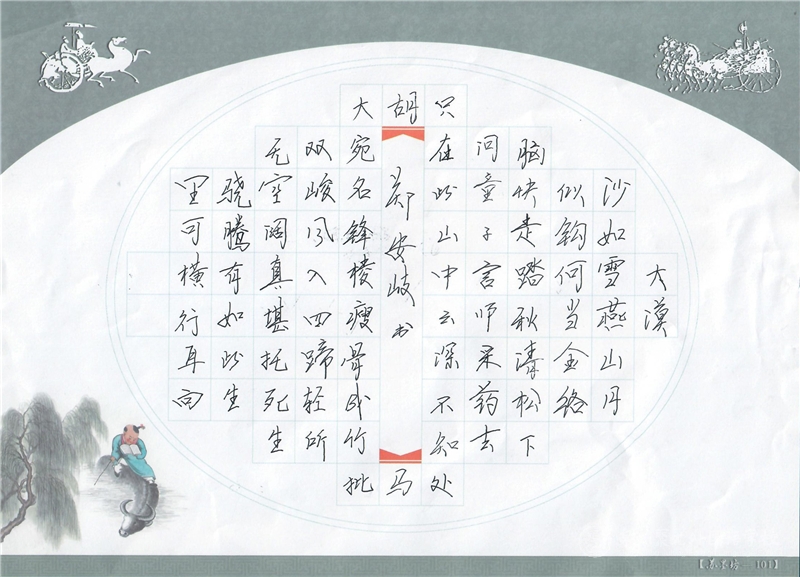 大漠
沙如雪燕山月
似钩何当金络
脑快走踏秋清松下
问童子言师采药去
只在此山中云深不知处
胡马
郑安岐书
大宛名锋棱瘦骨成竹批
双峻风入四蹄轻所
无空阔真堪托死生
骁腾有如此生
里可横行耳向
101